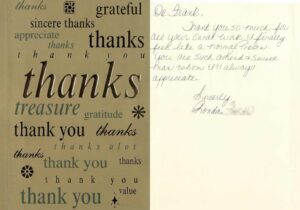 grateful
sincere thanks
appreciate thanks
thank you
thanks
treasure gratitude
thank you thanks
thanks alot
thanks thank you
thank you thanks
value
thank you
Dr. Frank,
Thank you so much for
all your hard work. I finally
feel like a normal
You are such a kind & sincere
I'll always
appreciate.
Sincerely